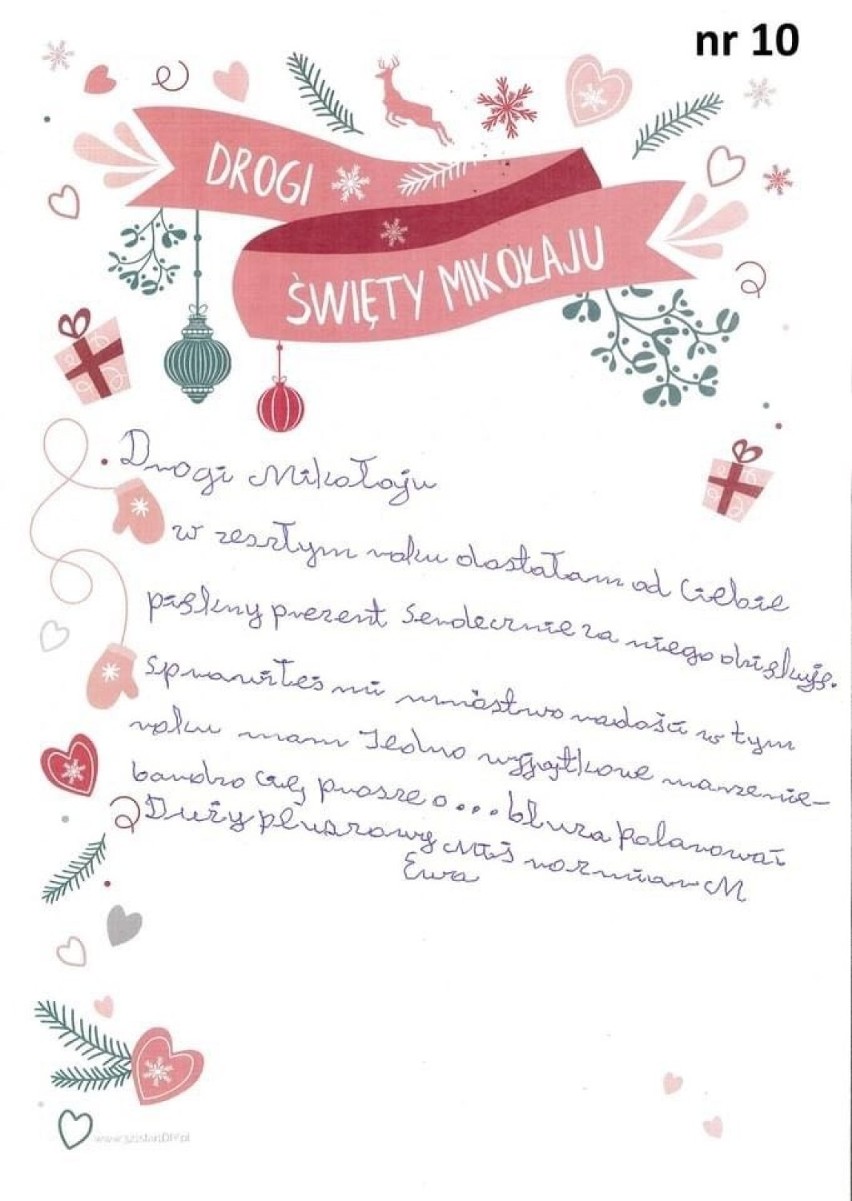 nr 10
DROGI
ŚWIĘTY MIKOŁAJU
Drogi Mikołaju
w zeszłym roku dostałam od Ciebie
piękny prezent Serdecznie za niego dziękuję.
Sprawiłeś mi mnóstwo radości w tym
roku mam Jedno wyjątkowe marzenie-
bardzo Cię prosze o... bluza polarowa
Duży pluszowy Miś rozmiar M
Ewa